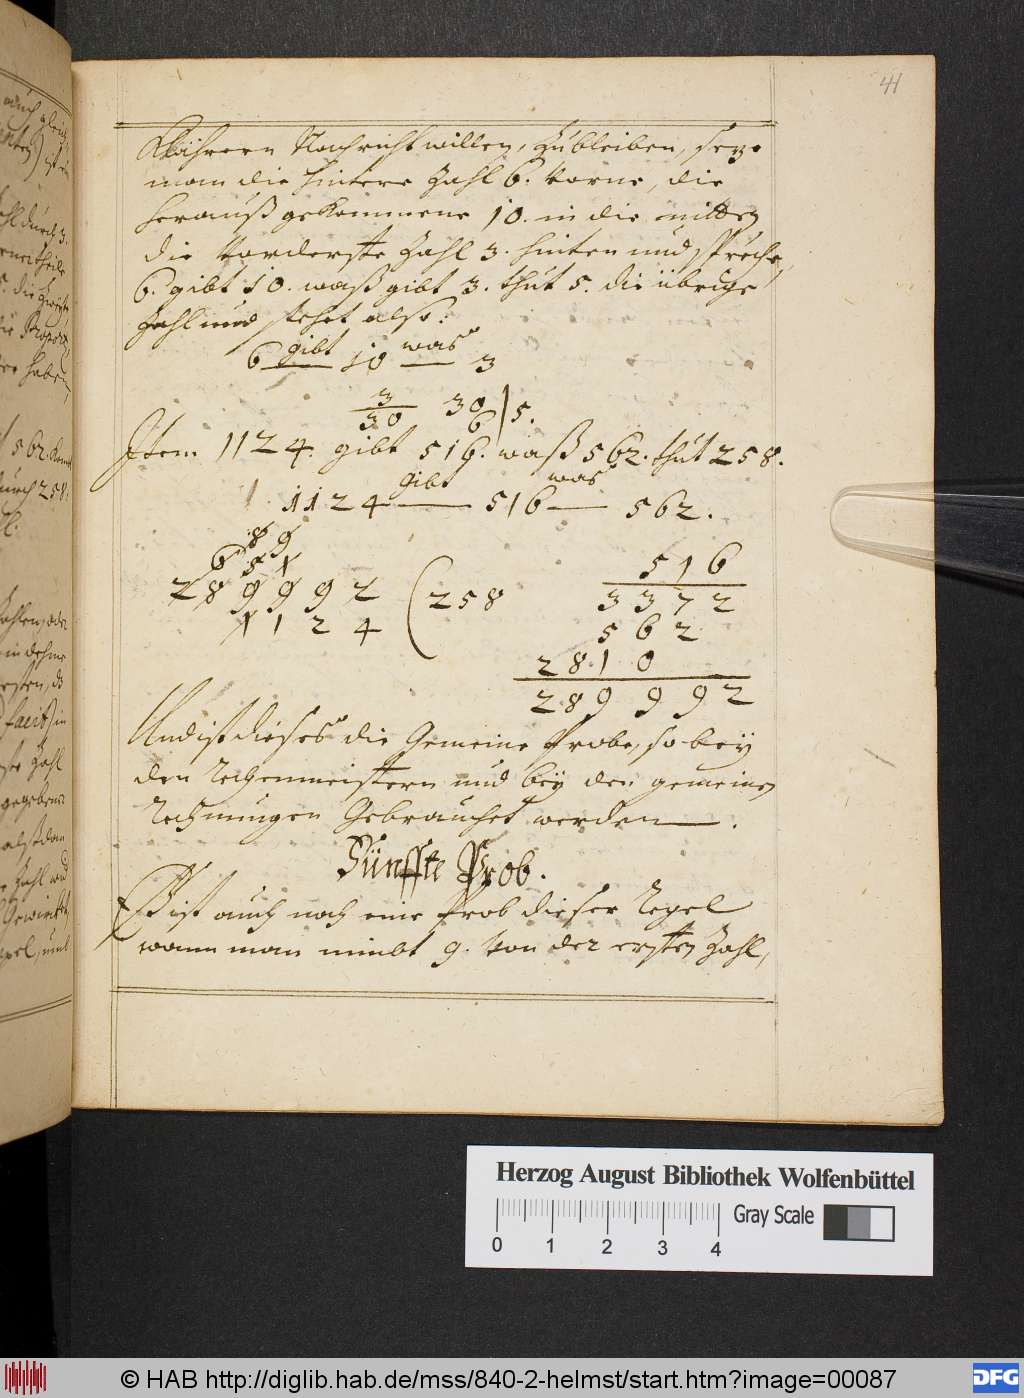 41
Nachricht willen, zubleiben, seze
man die hintere Zahl 6. vorne, die
herauß gekommene 10. in die mitten
die vorderste Zahl 3. hinten und spreche,
6. gibt 10. waß gibt 3. thut 5. die übrige
Zahl und stehet also:
6 gibt 10 was 3
3
30 30 | 5.
6
Item 1124. gibt 516. waß 562. thut 258.
1124 gibt 516 was 562.
8 9
6 5 1
2 8 9 9 9 2 ( 258
1 1 2 4
516
3372
562
2810
289992
Und ist dieses die Gemeine Probe, so bey
den Rechenmeistern und bey den gemeinen
Rechnungen Gebrauchet werden.
Fünffte Prob.
Eß ist auch noch eine Prob dieser Regel
wann man nimbt 9. von der ersten Zahl,
Herzog August Bibliothek Wolfenbüttel
Gray Scale
0 1 2 3 4
© HAB http://diglib.hab.de/mss/840-2-helmst/start.htm?image=00087
DFG